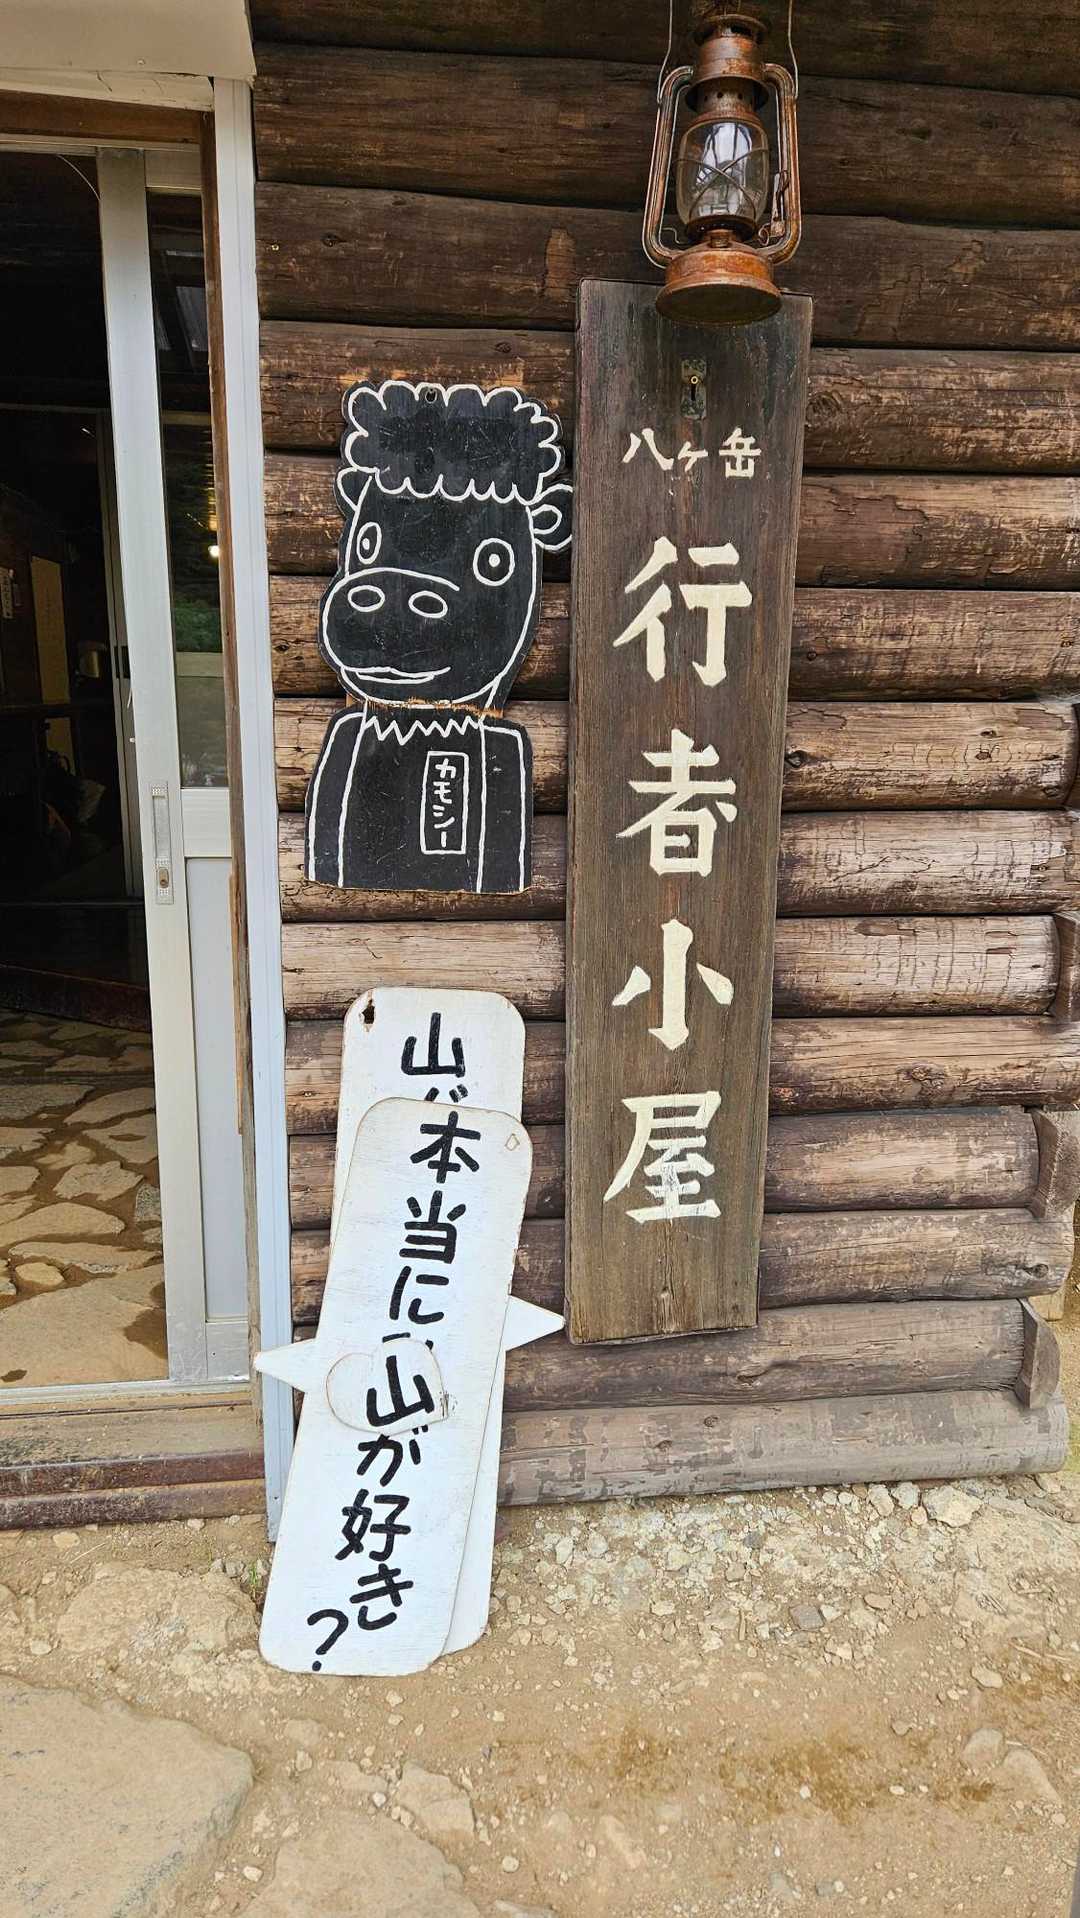 八ヶ岳
行者小屋
カモシー
山が
本当に
山が好き
？